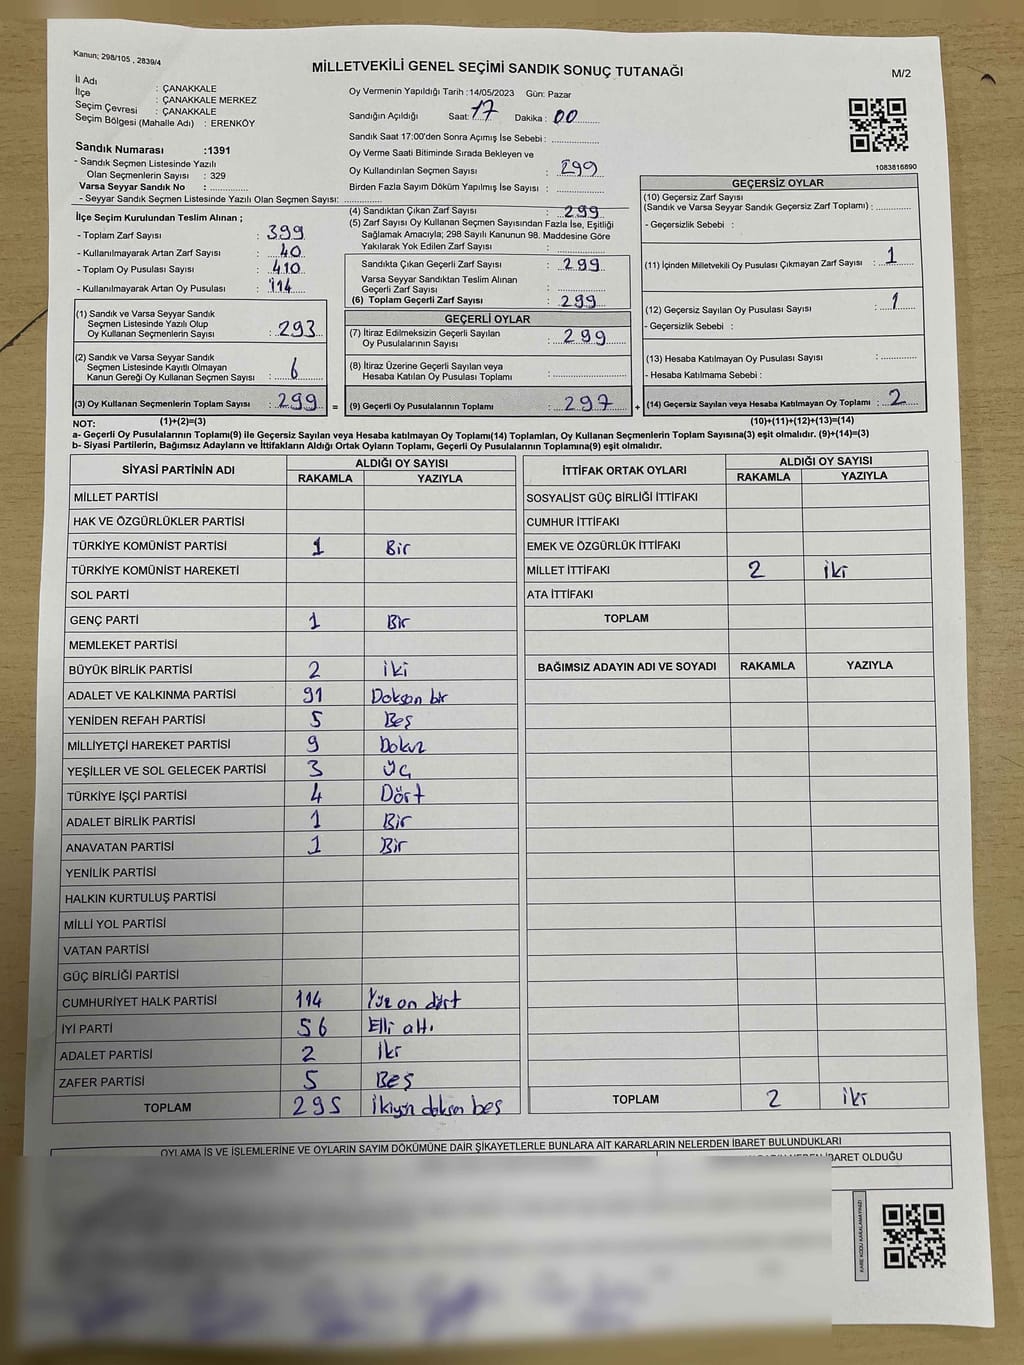 Kanun; 298/105 , 2839/4
MİLLETVEKİLİ GENEL SEÇİMİ SANDIK SONUÇ TUTANAĞI
M/2
İl Adı : ÇANAKKALE
İlçe : ÇANAKKALE MERKEZ
Seçim Çevresi : ÇANAKKALE
Seçim Bölgesi (Mahalle Adı) : ERENKÖY
Sandık Numarası :1391
- Sandık Seçmen Listesinde Yazılı
Olan Seçmenlerin Sayısı : 329
Varsa Seyyar Sandık No : ..............
- Seyyar Sandık Seçmen Listesinde Yazılı Olan Seçmen Sayısı: ..............
İlçe Seçim Kurulundan Teslim Alınan ;
- Toplam Zarf Sayısı : 399
- Kullanılmayarak Artan Zarf Sayısı : 40
- Toplam Oy Pusulası Sayısı : 410
- Kullanılmayarak Artan Oy Pusulası : 114
(1) Sandık ve Varsa Seyyar Sandık
Seçmen Listesinde Yazılı Olup
Oy Kullanan Seçmenlerin Sayısı : 293
(2) Sandık ve Varsa Seyyar Sandık
Seçmen Listesinde Kayıtlı Olmayan
Kanun Gereği Oy Kullanan Seçmen Sayısı : 6
(3) Oy Kullanan Seçmenlerin Toplam Sayısı : 299 =
Oy Vermenin Yapıldığı Tarih :14/05/2023 Gün: Pazar
Sandığın Açıldığı Saat: 17 Dakika : 00
Sandık Saat 17:00'den Sonra Açımış İse Sebebi : ..............
Oy Verme Saati Bitiminde Sırada Bekleyen ve
Oy Kullandırılan Seçmen Sayısı : 299
Birden Fazla Sayım Döküm Yapılmış İse Sayısı : ..............
(4) Sandıktan Çıkan Zarf Sayısı : 299
(5) Zarf Sayısı Oy Kullanan Seçmen Sayısından Fazla İse, Eşitliği
Sağlamak Amacıyla; 298 Sayılı Kanunun 98. Maddesine Göre
Yakılarak Yok Edilen Zarf Sayısı : ..............
Sandıkta Çıkan Geçerli Zarf Sayısı : 299
Varsa Seyyar Sandıktan Teslim Alınan
Geçerli Zarf Sayısı : ..............
(6) Toplam Geçerli Zarf Sayısı : 299
GEÇERLİ OYLAR
(7) İtiraz Edilmeksizin Geçerli Sayılan
Oy Pusulalarının Sayısı : 299
(8) İtiraz Üzerine Geçerli Sayılan veya
Hesaba Katılan Oy Pusulası Toplamı : ..............
(9) Geçerli Oy Pusulalarının Toplamı : 297 +
1083816890
GEÇERSİZ OYLAR
(10) Geçersiz Zarf Sayısı
(Sandık ve Varsa Seyyar Sandık Geçersiz Zarf Toplamı) : ..............
- Geçersizlik Sebebi :
(11) İçinden Milletvekili Oy Pusulası Çıkmayan Zarf Sayısı : 1
(12) Geçersiz Sayılan Oy Pusulası Sayısı : 1
- Geçersizlik Sebebi :
(13) Hesaba Katılmayan Oy Pusulası Sayısı : ..............
- Hesaba Katılmama Sebebi :
(14) Geçersiz Sayılan veya Hesaba Katılmayan Oy Toplamı : 2
NOT: (1)+(2)=(3) (10)+(11)+(12)+(13)=(14)
a- Geçerli Oy Pusulalarının Toplamı(9) ile Geçersiz Sayılan veya Hesaba katılmayan Oy Toplamı(14) Toplamları, Oy Kullanan Seçmenlerin Toplam Sayısına(3) eşit olmalıdır. (9)+(14)=(3)
b- Siyasi Partilerin, Bağımsız Adayların ve İttifakların Aldığı Ortak Oyların Toplamı, Geçerli Oy Pusulalarının Toplamına(9) eşit olmalıdır.
SİYASİ PARTİNİN ADI ALDIĞI OY SAYISI
RAKAMLA YAZIYLA
MİLLET PARTİSİ
HAK VE ÖZGÜRLÜKLER PARTİSİ
TÜRKİYE KOMÜNİST PARTİSİ 1 Bir
TÜRKİYE KOMÜNİST HAREKETİ
SOL PARTİ
GENÇ PARTİ 1 Bir
MEMLEKET PARTİSİ
BÜYÜK BİRLİK PARTİSİ 2 İki
ADALET VE KALKINMA PARTİSİ 91 Doksan bir
YENİDEN REFAH PARTİSİ 5 Beş
MİLLİYETÇİ HAREKET PARTİSİ 9 Dokuz
YEŞİLLER VE SOL GELECEK PARTİSİ 3 Üç
TÜRKİYE İŞÇİ PARTİSİ 4 Dört
ADALET BİRLİK PARTİSİ 1 Bir
ANAVATAN PARTİSİ 1 Bir
YENİLİK PARTİSİ
HALKIN KURTULUŞ PARTİSİ
MİLLİ YOL PARTİSİ
VATAN PARTİSİ
GÜÇ BİRLİĞİ PARTİSİ
CUMHURİYET HALK PARTİSİ 114 Yüz on dört
İYİ PARTİ 56 Elli altı
ADALET PARTİSİ 2 İki
ZAFER PARTİSİ 5 Beş
TOPLAM 295 İkiyüz doksan beş
İTTİFAK ORTAK OYLARI ALDIĞI OY SAYISI
RAKAMLA YAZIYLA
SOSYALİST GÜÇ BİRLİĞİ İTTİFAKI
CUMHUR İTTİFAKI
EMEK VE ÖZGÜRLÜK İTTİFAKI
MİLLET İTTİFAKI 2 İki
ATA İTTİFAKI
TOPLAM
BAĞIMSIZ ADAYIN ADI VE SOYADI RAKAMLA YAZIYLA
TOPLAM 2 İki
OYLAMA İŞ VE İŞLEMLERİNE VE OYLARIN SAYIM DÖKÜMÜNE DAİR ŞİKAYETLERLE BUNLARA AİT KARARLARIN NELERDEN İBARET BULUNDUKLARI
İBARET OLDUĞU
KARE KODU KARALAMAYINIZ!